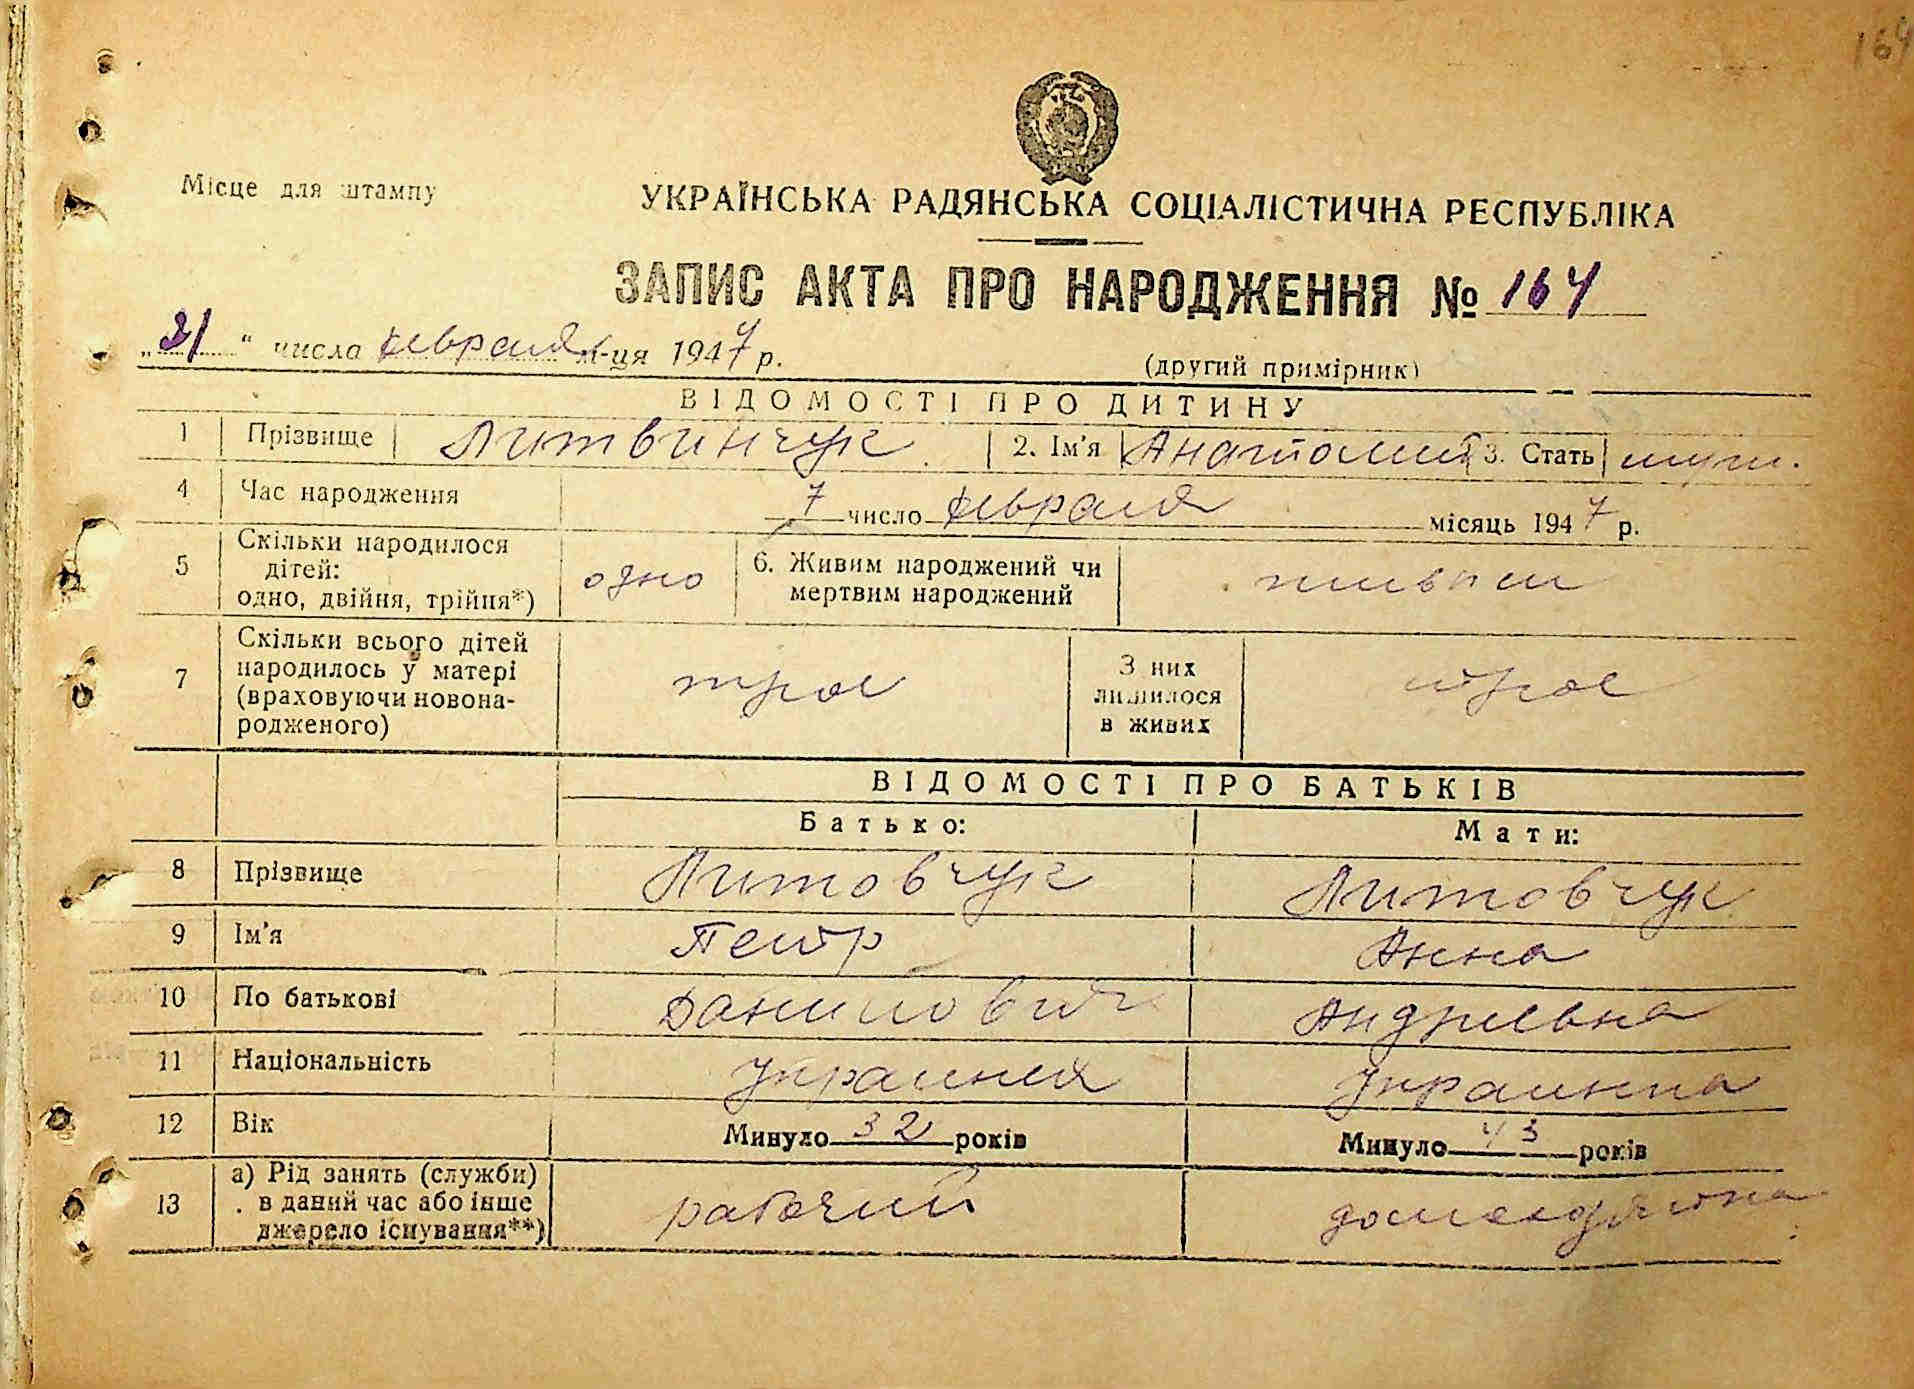 164
Місце для штампу
УКРАЇНСЬКА РАДЯНСЬКА СОЦІАЛІСТИЧНА РЕСПУБЛІКА
ЗАПИС АКТА ПРО НАРОДЖЕННЯ № 164
„21“ числа февраля м-ця 1947 р.
(другий примірник)
ВІДОМОСТІ ПРО ДИТИНУ
1 Прізвище Литвинчук 2. Ім’я Анатолий 3. Стать муж.
4 Час народження 7 число февраля місяць 1947 р.
5 Скільки народилося дітей: одно, двійня, трійня*) одно 6. Живим народжений чи мертвим народжений живым
7 Скільки всього дітей народилось у матері (враховуючи новона-родженого) трое З них лишилося в живих трое
ВІДОМОСТІ ПРО БАТЬКІВ
Батько: Мати:
8 Прізвище Литовчук Литовчук
9 Ім’я Петр Анна
10 По батькові Данилович Андреевна
11 Національність украинец украинка
12 Вік Минуло 32 років Минуло 43 років
13 а) Рід занять (служби) в даний час або інше джерело існування**) рабочий домохозяйка